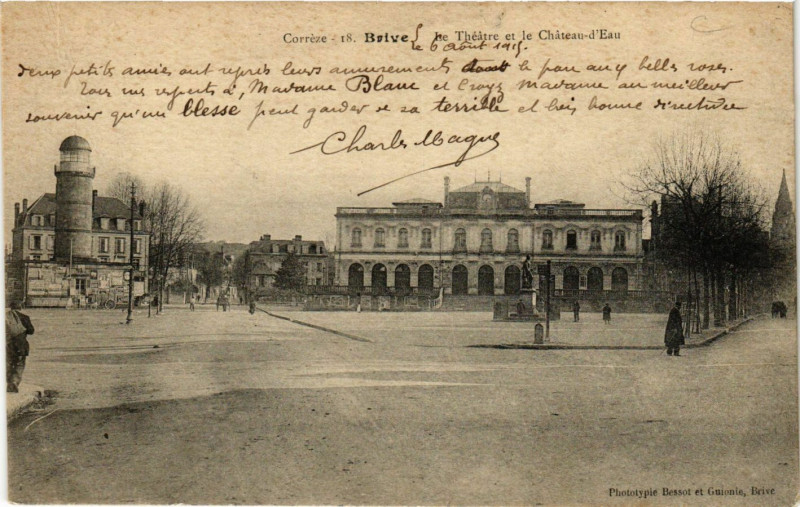 Corrèze - 18. Brive - Le Théâtre et le Château-d'Eau
le 6 août 1915.
deux petits amies ont repris leurs amusements dont le pour aux belles roses.
Tous mes respects à, Madame Blanc et Croyez Madame au meilleur
souvenir qu'un blesse peut garder de sa terrible et bonne directrice
Charles Magne
Phototypie Bessot et Guionie, Brive